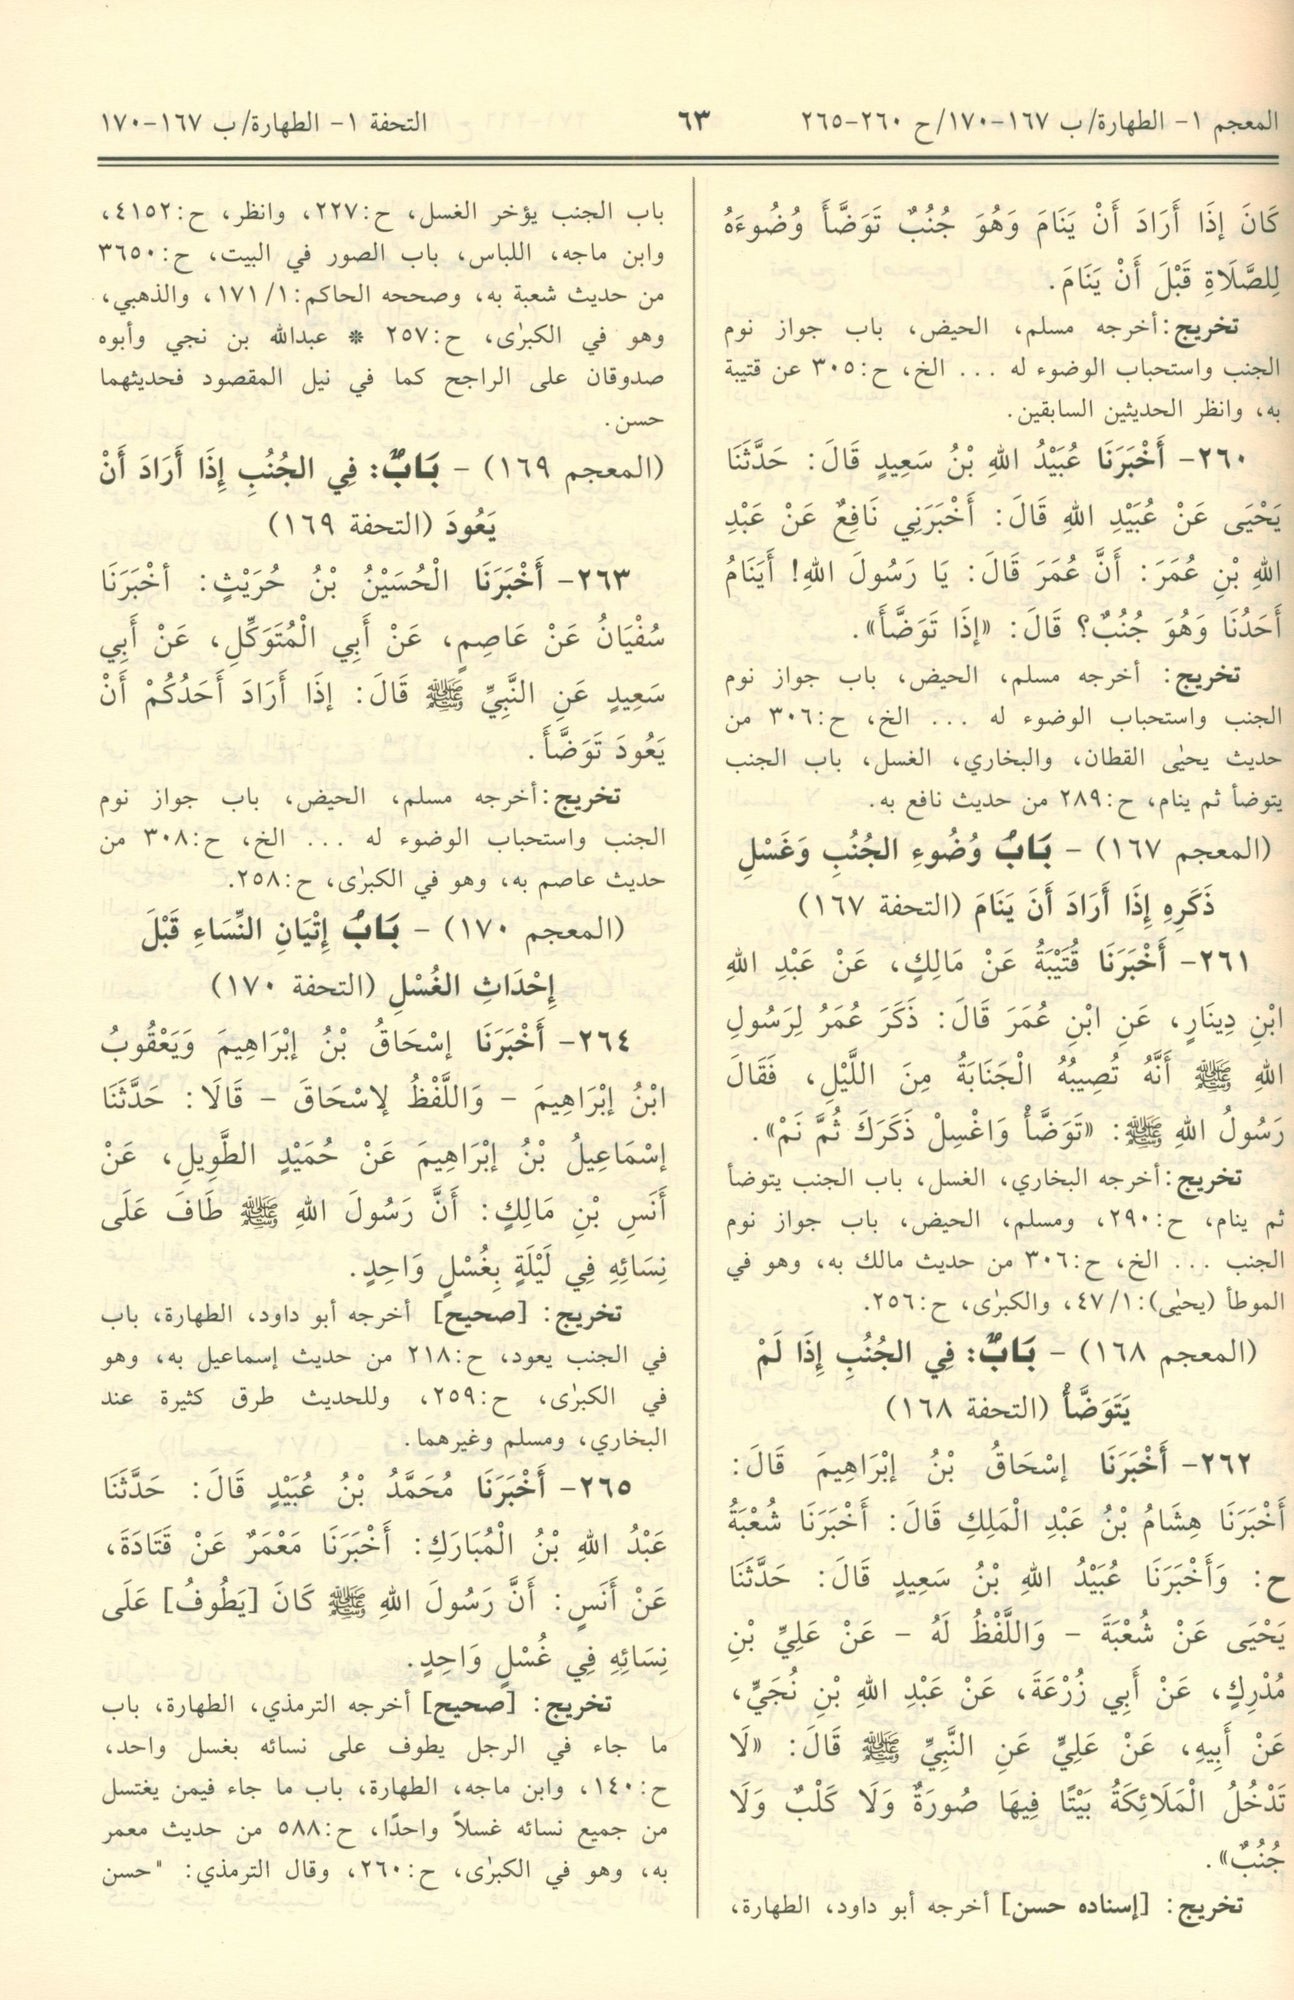 المعجم ١- الطهارة/ ب ١٦٧-١٧٠/ ح ٢٦٠-٢٦٥
٦٣
التحفة ١- الطهارة/ ب ١٦٧-١٧٠
كَانَ إِذَا أَرَادَ أَنْ يَنَامَ وَهُوَ جُنُبٌ تَوَضَّأَ وُضُوءَهُ
لِلصَّلَاةِ قَبْلَ أَنْ يَنَامَ.
تخريج: أخرجه مسلم، الحيض، باب جواز نوم
الجنب واستحباب الوضوء له ... الخ، ح:٣٠٥ عن قتيبة
به، وانظر الحديثين السابقين.
٢٦٠- أَخْبَرَنَا عُبَيْدُ اللهِ بْنُ سَعِيدٍ قَالَ: حَدَّثَنَا
يَحْيَى عَنْ عُبَيْدِ اللهِ قَالَ: أَخْبَرَنِي نَافِعٌ عَنْ عَبْدِ
اللهِ بْنِ عُمَرَ: أَنَّ عُمَرَ قَالَ: يَا رَسُولَ اللهِ! أَيَنَامُ
أَحَدُنَا وَهُوَ جُنُبٌ؟ قَالَ: «إِذَا تَوَضَّأَ».
تخريج: أخرجه مسلم، الحيض، باب جواز نوم
الجنب واستحباب الوضوء له ... الخ، ح:٣٠٦ من
حديث يحيٰى القطان، والبخاري، الغسل، باب الجنب
يتوضأ ثم ينام، ح:٢٨٩ من حديث نافع به.
(المعجم ١٦٧) - بَابُ وُضُوءِ الجُنُبِ وَغَسْلِ
ذَكَرِهِ إِذَا أَرَادَ أَنَ يَنَامَ (التحفة ١٦٧)
٢٦١- أَخْبَرَنَا قُتَيْبَةُ عَنْ مَالِكٍ، عَنْ عَبْدِ اللهِ
ابْنِ دِينَارٍ، عَنِ ابْنِ عُمَرَ قَالَ: ذَكَرَ عُمَرُ لِرَسُولِ
اللهِ ﷺ أَنَّهُ تُصِيبُهُ الْجَنَابَةُ مِنَ اللَّيْلِ، فَقَالَ
رَسُولُ اللهِ ﷺ: «تَوَضَّأْ وَاغْسِلْ ذَكَرَكَ ثُمَّ نَمْ».
تخريج: أخرجه البخاري، الغسل، باب الجنب يتوضأ
ثم ينام، ح:٢٩٠، ومسلم، الحيض، باب جواز نوم
الجنب ... الخ، ح:٣٠٦ من حديث مالك به، وهو في
الموطأ (يحيٰى):١/ ٤٧، والكبرٰى، ح:٢٥٦.
(المعجم ١٦٨) - بَابٌ: فِي الجُنُبِ إِذَا لَمْ
يَتَوَضَّأْ (التحفة ١٦٨)
٢٦٢- أَخْبَرَنَا إِسْحَاقُ بْنُ إِبْرَاهِيمَ قَالَ:
أَخْبَرَنَا هِشَامُ بْنُ عَبْدِ الْمَلِكِ قَالَ: أَخْبَرَنَا شُعْبَةُ
ح: وَأَخْبَرَنَا عُبَيْدُ اللهِ بْنُ سَعِيدٍ قَالَ: حَدَّثَنَا
يَحْيَى عَنْ شُعْبَةَ - وَاللَّفْظُ لَهُ - عَنْ عَلِيِّ بْنِ
مُدْرِكٍ، عَنْ أَبِي زُرْعَةَ، عَنْ عَبْدِ اللهِ بْنِ نُجَيٍّ،
عَنْ أَبِيهِ، عَنْ عَلِيٍّ عَنِ النَّبِيِّ ﷺ قَالَ: «لَا
تَدْخُلُ الْمَلَائِكَةُ بَيْتًا فِيهَا صُورَةٌ وَلَا كَلْبٌ وَلَا
جُنُبٌ».
تخريج: [إسناده حسن] أخرجه أبو داود، الطهارة،
باب الجنب يؤخر الغسل، ح:٢٢٧، وانظر، ح:٤١٥٢،
وابن ماجه، اللباس، باب الصور في البيت، ح:٣٦٥٠
من حديث شعبة به، وصححه الحاكم:١/ ١٧١، والذهبي،
وهو في الكبرٰى، ح:٢٥٧ * عبدالله بن نجي وأبوه
صدوقان على الراجح كما في نيل المقصود فحديثهما
حسن.
(المعجم ١٦٩) - بَابٌ: فِي الجُنُبِ إِذَا أَرَادَ أَنْ
يَعُودَ (التحفة ١٦٩)
٢٦٣- أَخْبَرَنَا الْحُسَيْنُ بْنُ حُرَيْثٍ: أَخْبَرَنَا
سُفْيَانُ عَنْ عَاصِمٍ، عَنْ أَبِي الْمُتَوَكِّلِ، عَنْ أَبِي
سَعِيدٍ عَنِ النَّبِيِّ ﷺ قَالَ: إِذَا أَرَادَ أَحَدُكُمْ أَنْ
يَعُودَ تَوَضَّأَ.
تخريج: أخرجه مسلم، الحيض، باب جواز نوم
الجنب واستحباب الوضوء له ... الخ، ح:٣٠٨ من
حديث عاصم به، وهو في الكبرٰى، ح:٢٥٨.
(المعجم ١٧٠) - بَابُ إِتْيَانِ النِّسَاءِ قَبْلَ
إِحْدَاثِ الغُسْلِ (التحفة ١٧٠)
٢٦٤- أَخْبَرَنَا إِسْحَاقُ بْنُ إِبْرَاهِيمَ وَيَعْقُوبُ
ابْنُ إِبْرَاهِيمَ - وَاللَّفْظُ لِإِسْحَاقَ - قَالَا: حَدَّثَنَا
إِسْمَاعِيلُ بْنُ إِبْرَاهِيمَ عَنْ حُمَيْدٍ الطَّوِيلِ، عَنْ
أَنَسِ بْنِ مَالِكٍ: أَنَّ رَسُولَ اللهِ ﷺ طَافَ عَلَى
نِسَائِهِ فِي لَيْلَةٍ بِغُسْلٍ وَاحِدٍ.
تخريج: [صحيح] أخرجه أبو داود، الطهارة، باب
في الجنب يعود، ح:٢١٨ من حديث إسماعيل به، وهو
في الكبرٰى، ح:٢٥٩، وللحديث طرق كثيرة عند
البخاري، ومسلم وغيرهما.
٢٦٥- أَخْبَرَنَا مُحَمَّدُ بْنُ عُبَيْدٍ قَالَ: حَدَّثَنَا
عَبْدُ اللهِ بْنُ الْمُبَارَكِ: أَخْبَرَنَا مَعْمَرٌ عَنْ قَتَادَةَ،
عَنْ أَنَسٍ: أَنَّ رَسُولَ اللهِ ﷺ كَانَ [يَطُوفُ] عَلَى
نِسَائِهِ فِي غُسْلٍ وَاحِدٍ.
تخريج: [صحيح] أخرجه الترمذي، الطهارة، باب
ما جاء في الرجل يطوف على نسائه بغسل واحد،
ح:١٤٠، وابن ماجه، الطهارة، باب ما جاء فيمن يغتسل
من جميع نسائه غسلاً واحدًا، ح:٥٨٨ من حديث معمر
به، وهو في الكبرٰى، ح:٢٦٠، وقال الترمذي: "حسن